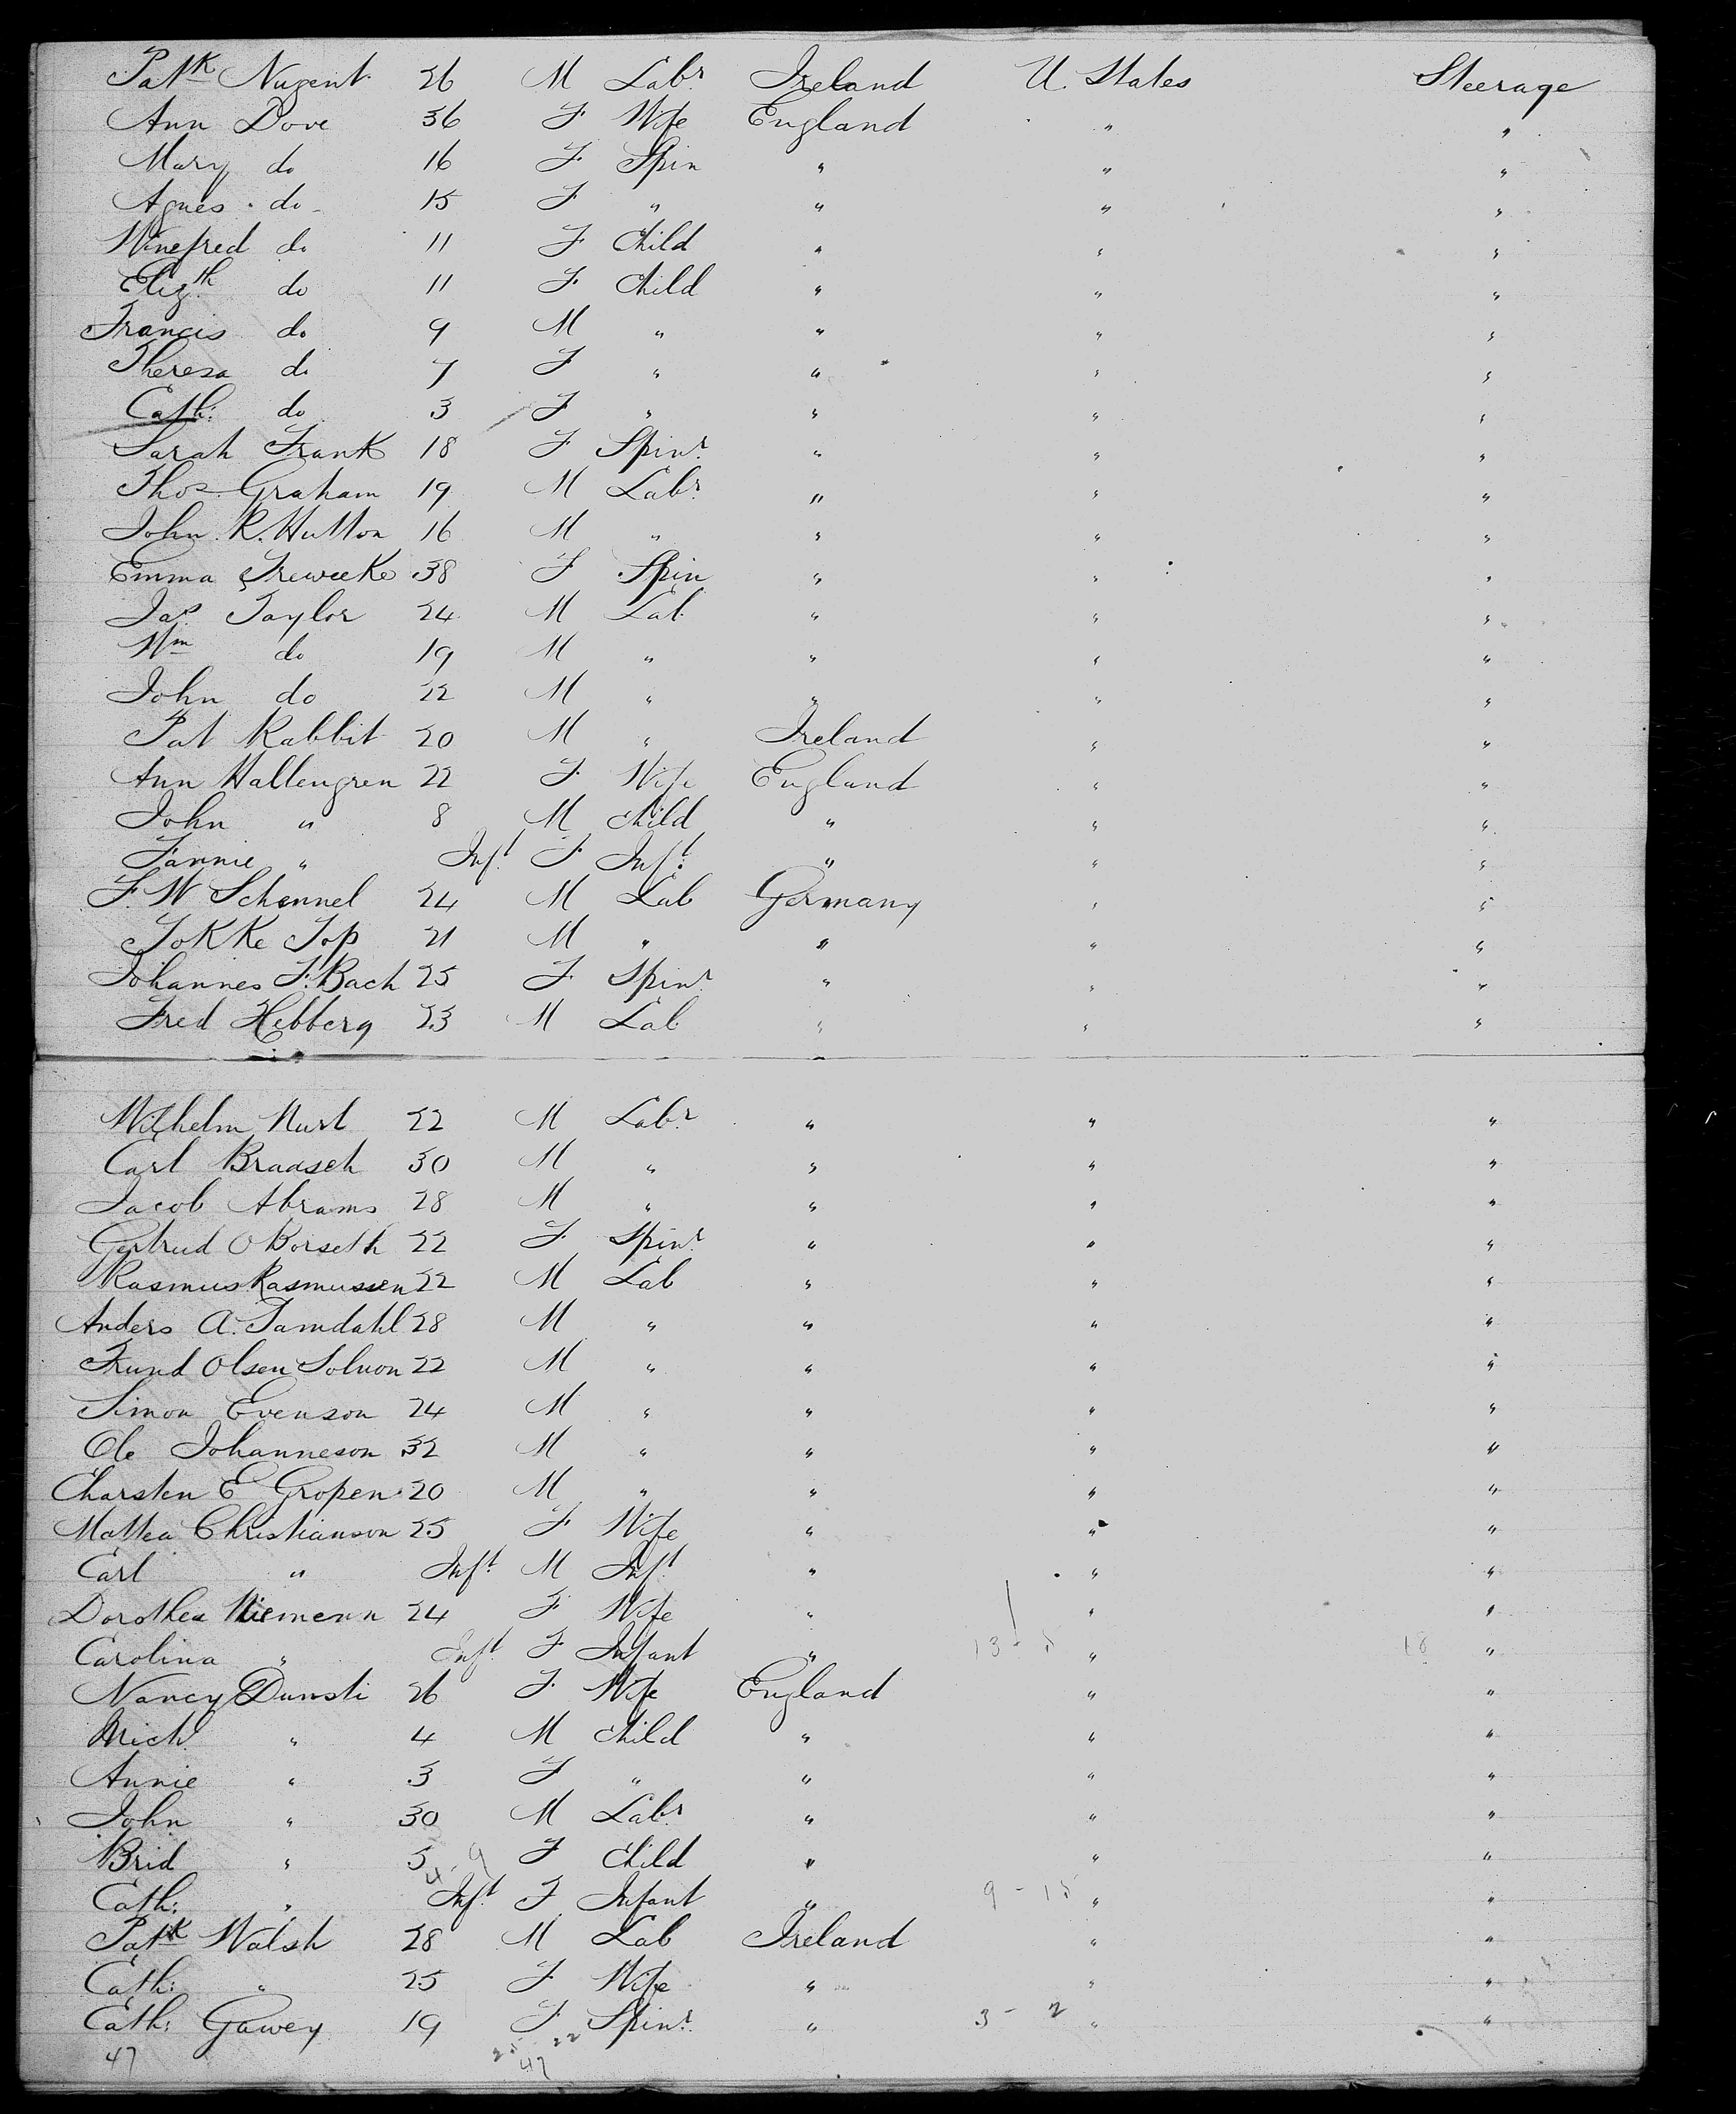 Patk Nugent 26 M Labr Ireland U. States Steerage
Ann Dove 36 F Wife England " "
Mary do 16 F Spin " " "
Agnes do 15 F " " " "
Winefred do 11 F Child " " "
Elizth do 11 F Child " " "
Francis do 9 M " " " "
Theresa do 7 F " " " "
Cath: do 3 F " " " "
Sarah Frank 18 F Spinr " " "
Thos Graham 19 M Labr " " "
John R. Hutton 16 M " " " "
Emma Treweeke 38 F Spin " " "
Jas Taylor 24 M Lab " " "
Wm do 19 M " " " "
John do 22 M " " " "
Pat Rabbit 20 M " Ireland " "
Ann Hallengren 22 F Wife England " "
John " 8 M Child " " "
Fannie " Inft F Inft " " "
F W Schennel 24 M Lab Germany " "
Tokke Top 21 M " " " "
Johannes F. Bach 25 F Spinr " " "
Fred Hebberg 23 M Lab " " "
Wilhelm 22 M Labr " " "
Carl Braasch 30 M " " " "
Jacob Abrams 28 M " " " "
Gertrud O Borseth 22 F Spinr " " "
Rasmus Rasmussen 22 M Lab " " "
Anders A. Tamdahl 28 M " " " "
Olsen 22 M " " " "
Simon Evenson 24 M " " " "
Ole Johanneson 32 M " " " "
Charsten E Gropen 20 M " " " "
Mattea Christianson 25 F Wife " " "
Carl " Inft M Inft " " "
Dorothea Niemenn 24 F Wife " " "
Carolina " Inft F Infant " 13 - 5 " 18 "
Nancy Dunsti 26 F Wife England " "
Mich " 4 M Child " " "
Annie " 3 F " " " "
John " 30 M Labr " " "
Brid " 5 F Child " " "
Cath: " Inft F Infant " 9 - 15 " "
Patk Walsh 28 M Lab Ireland " "
Cath: " 25 F Wife " " "
Cath: Gawey 19 F Spinr " 3 - 2 " "
47 25 22
47